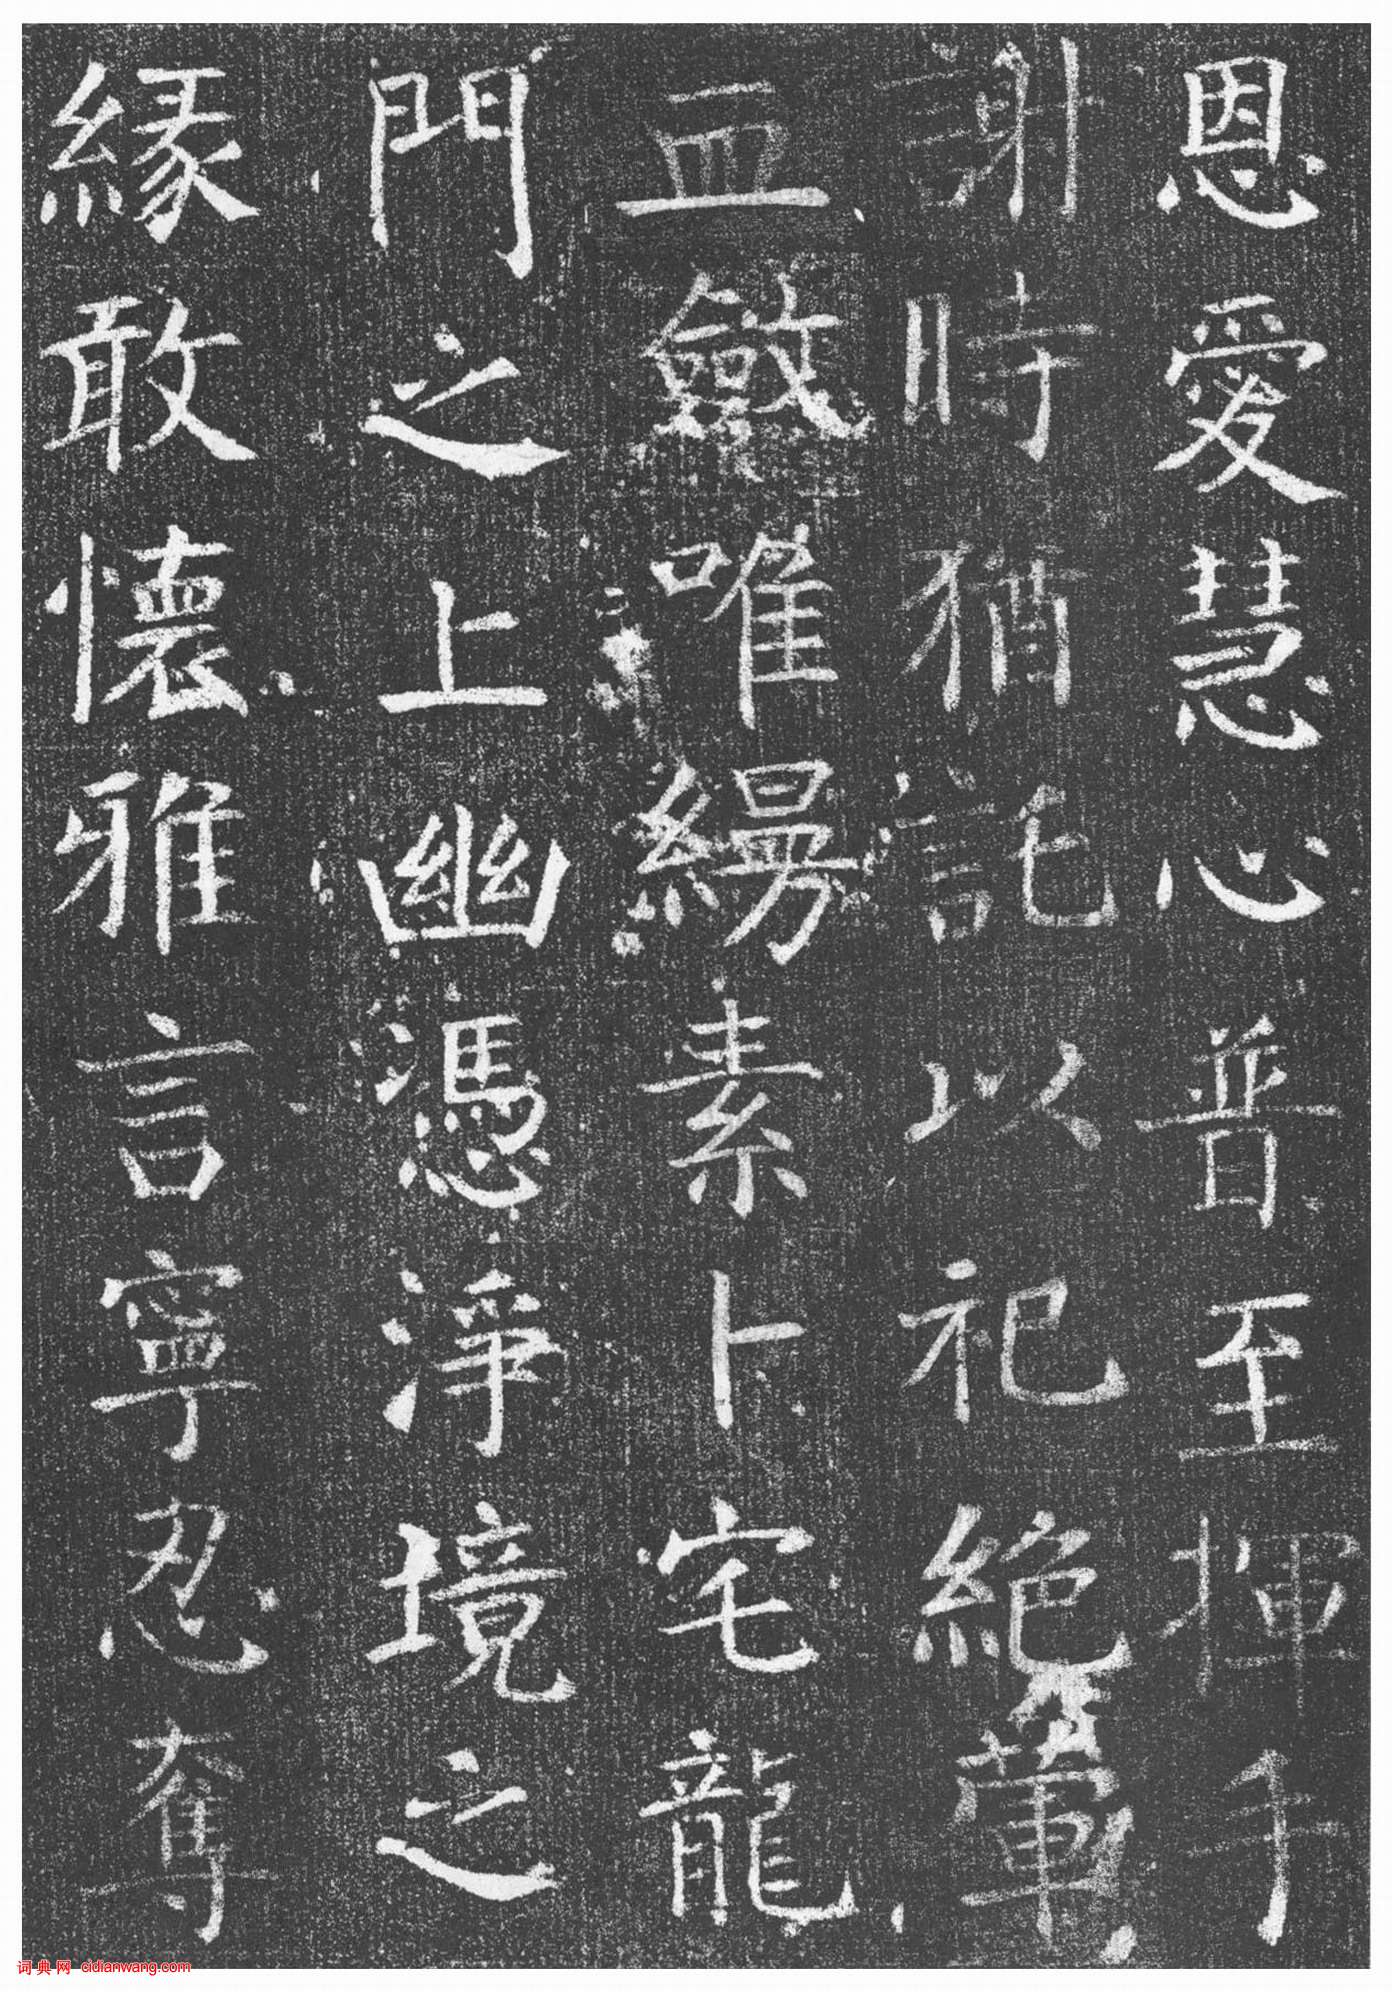 恩愛慧心普至揮手
謝時猶託以祀絕葷
血斂唯縵素卜宅龍
門之上幽憑淨境之
緣敢懷雅言寧忍奪
词典网 cidianwang.com